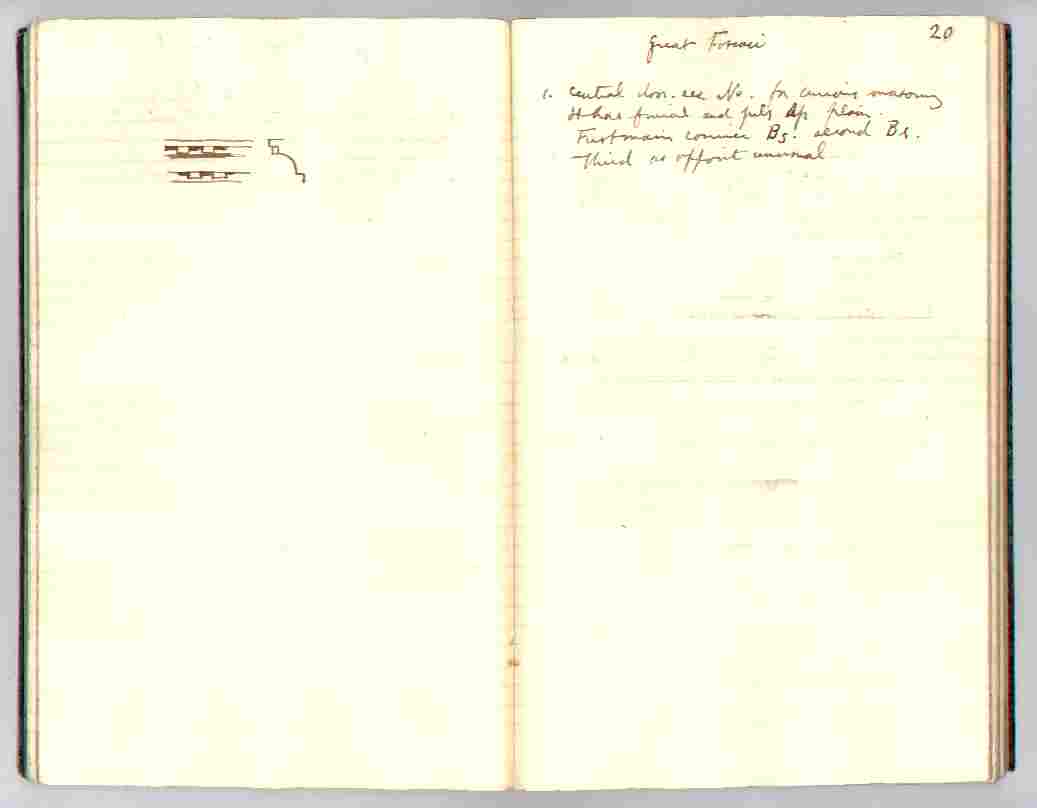 20
Great Foscari
1. Central door. see No. for curious masonry
It has finial and plain.
First main cornice B5. second B5.
Third as opposite unusual